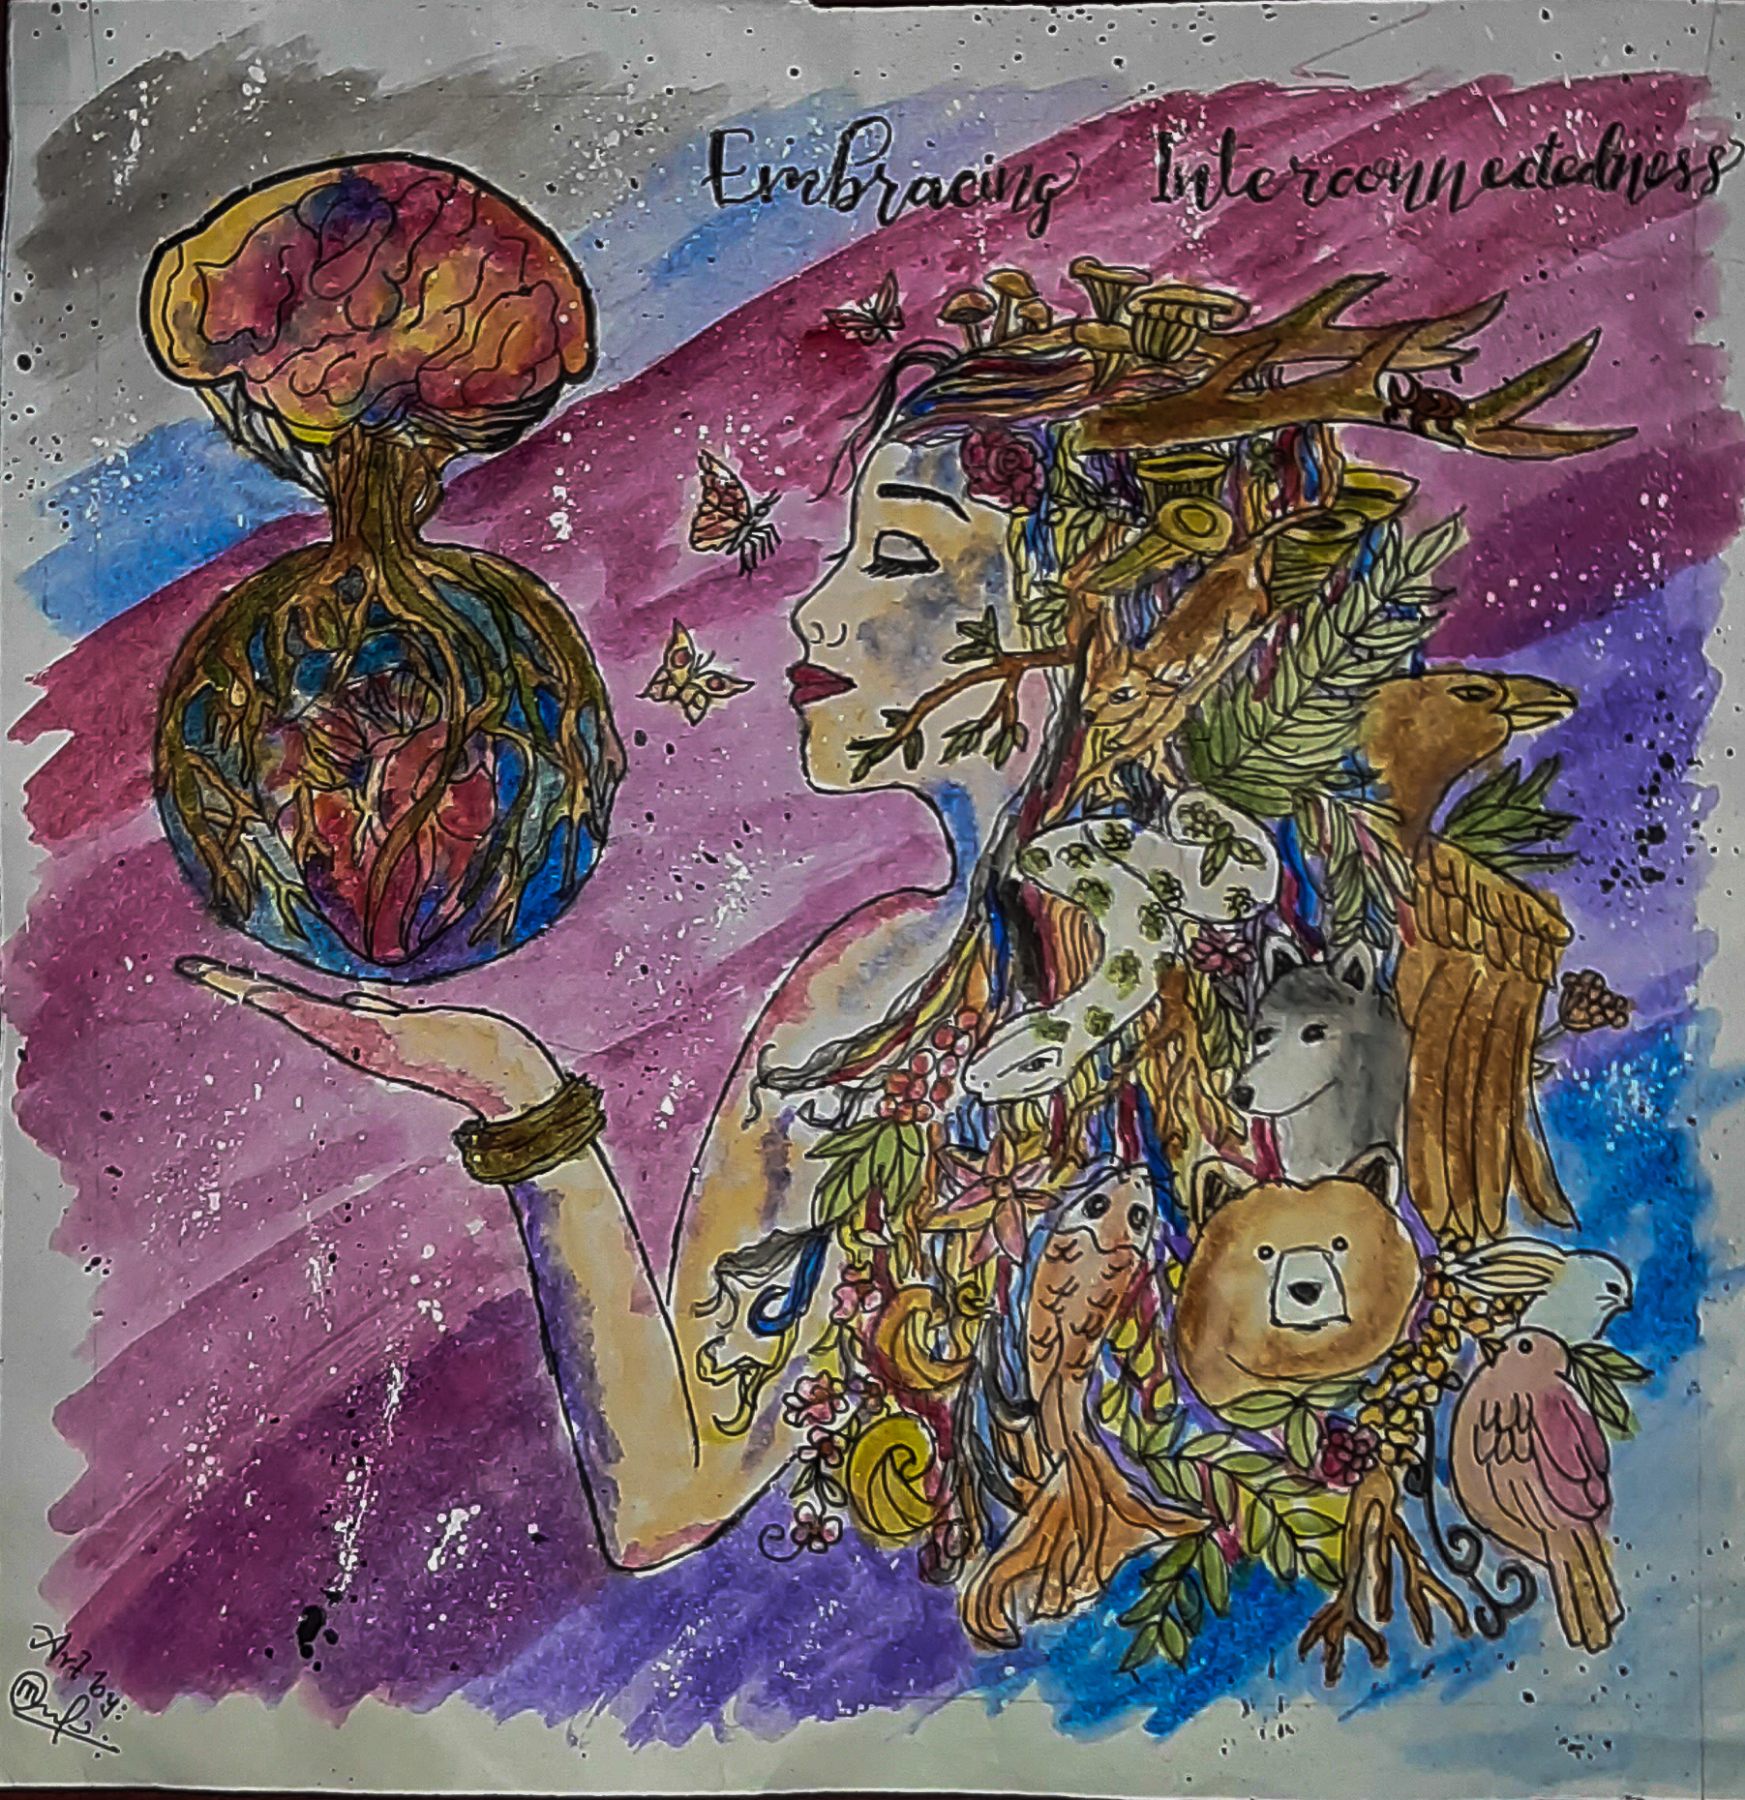 Embracing Interconnectedness
Art by: